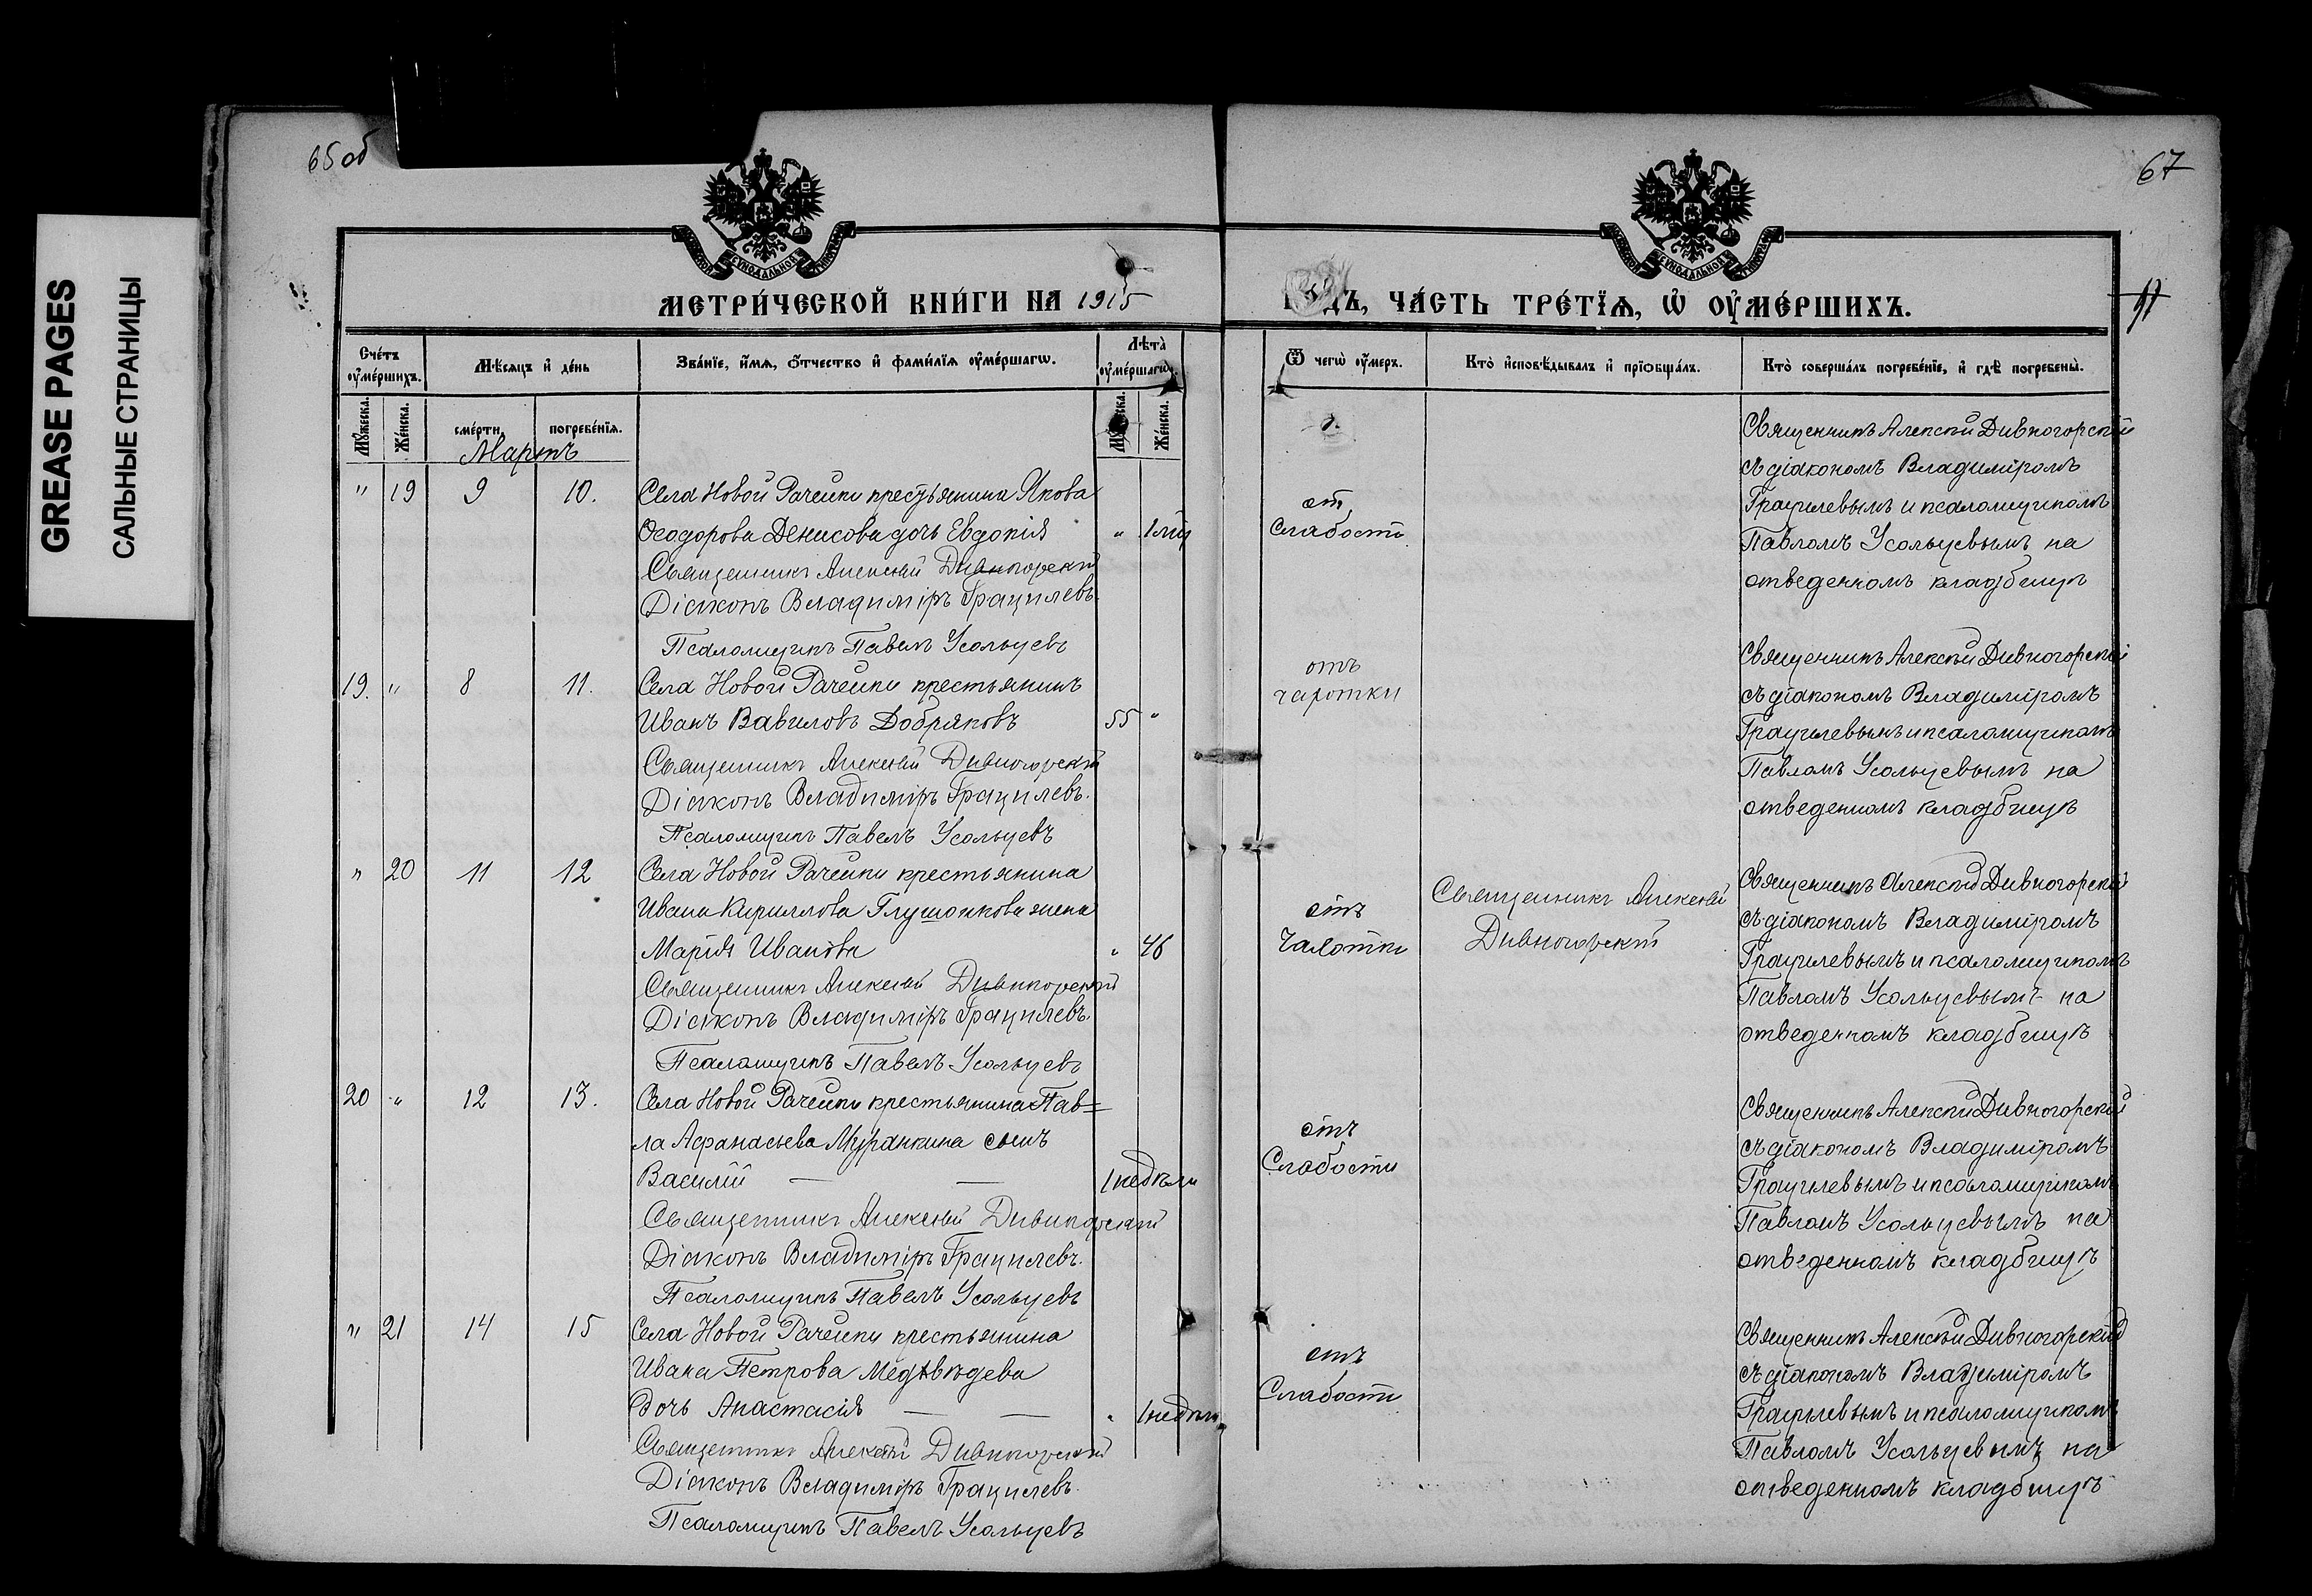 65 об
67
GREASE PAGES
САЛЬНЫЕ СТРАНИЦЫ
МЕТРИ́ЧЕСКОЙ КНИ́ГИ НА 1915
ГОДЪ, ЧА́СТЬ ТРЕ́ТЇѦ, Ѡ҆ ОУ҆МЕ́РШИХЪ.
Сче́тъ оу҆ме́ршихъ.
Мѣ́сяцъ и҆ де́нь
Зва́нїе, и҆́мѧ, ѻ҆́тчество и҆ фами́лїѧ оу҆ме́ршагѡ.
Лѣ́та оу҆ме́ршагѡ.
Ѿ чегѡ̀ оу҆́меръ.
Кто̀ и҆сповѣ́дывалъ и҆ прїѡбща́лъ.
Кто̀ соверша́лъ погребе́нїе, и҆ гдѣ̀ погребены̀.
Му́жеска.
Же́нска.
сме́рти.
погребе́нїѧ.
Же́нска.
Мартъ
" 19 9 10. Села Новой Рачейки крестьянина Якова
Ѳеодорова Денисова дочь Евдокія " 1 мѣц
Священникъ Алексѣй Дивногорскій
Діаконъ Владиміръ Грацилевъ.
Псаломщикъ Павелъ Усольцевъ
от
слабости
Священникъ Алексѣй Дивногорскій
съ діакономъ Владиміромъ
Грацилевымъ и псаломщикомъ
Павломъ Усольцевымъ на
отведенномъ кладбищѣ
19. " 8 11. Села Новой Рачейки крестьянинъ
Иванъ Вавиловъ Добряковъ 55 "
Священникъ Алексѣй Дивногорскій
Діаконъ Владиміръ Грацилевъ.
Псаломщикъ Павелъ Усольцевъ
отъ
чахотки
Священникъ Алексѣй Дивногорскій
съ діакономъ Владиміромъ
Грацилевымъ и псаломщикомъ
Павломъ Усольцевымъ на
отведенномъ кладбищѣ
" 20 11 12 Села Новой Рачейки крестьянина
Ивана Кириллова Глушонкова жена
Марія Иванова " 46
Священникъ Алексѣй Дивногорскій
Діаконъ Владиміръ Грацилевъ.
Псаломщикъ Павелъ Усольцевъ
отъ
чахотки
Священникъ Алексѣй
Дивногорскій
Священникъ Алексѣй Дивногорскій
съ діакономъ Владиміромъ
Грацилевымъ и псаломщикомъ
Павломъ Усольцевымъ на
отведенномъ кладбищѣ
20 " 12 13. Села Новой Рачейки крестьянина Пав=
ла Афанасьева Муранкина сынъ
Василій — — 1 недѣли
Священникъ Алексѣй Дивногорскій
Діаконъ Владиміръ Грацилевъ.
Псаломщикъ Павелъ Усольцевъ
отъ
слабости
Священникъ Алексѣй Дивногорскій
съ діакономъ Владиміромъ
Грацилевымъ и псаломщикомъ
Павломъ Усольцевымъ на
отведенномъ кладбищѣ
" 21 14 15 Села Новой Рачейки крестьянина
Ивана Петрова Медвѣдева
дочь Анастасія — — " 1 недѣли
Священникъ Алексѣй Дивногорскій
Діаконъ Владиміръ Грацилевъ.
Псаломщикъ Павелъ Усольцевъ
отъ
слабости
Священникъ Алексѣй Дивногорскій
съ діакономъ Владиміромъ
Грацилевымъ и псаломщикомъ
Павломъ Усольцевымъ на
отведенномъ кладбищѣ